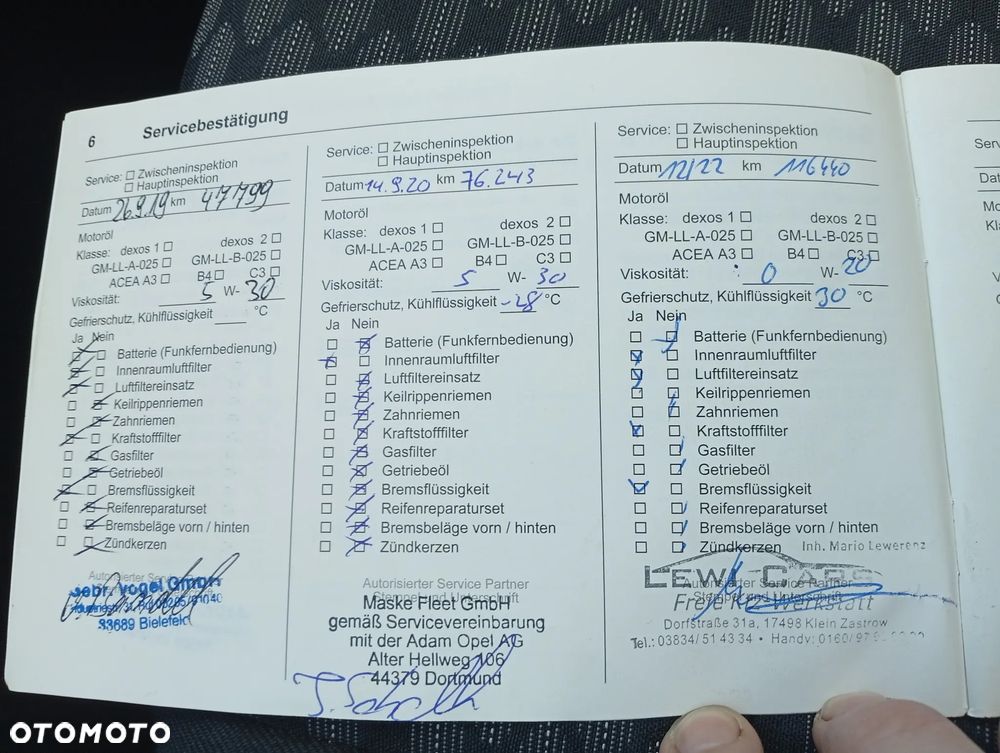 6 Servicebestätigung
Service: □ Zwischeninspektion
□ Hauptinspektion
Datum 26.9.19 km 47799
Motoröl
Klasse: dexos 1 □ dexos 2 □
GM-LL-A-025 □ GM-LL-B-025 □
ACEA A3 □ B4 □ C3 □
Viskosität: 5 W- 30
Gefrierschutz, Kühlflüssigkeit °C
Ja Nein
Batterie (Funkfernbedienung)
Innenraumluftfilter
Luftfiltereinsatz
Keilrippenriemen
Zahnriemen
Kraftstofffilter
Gasfilter
Getriebeöl
Bremsflüssigkeit
Reifenreparaturset
Bremsbeläge vorn / hinten
Zündkerzen
Autorisierter
Gebr. Vogel GmbH
33689 Bielefeld
Service: □ Zwischeninspektion
□ Hauptinspektion
Datum 14.9.20 km 76.243
Motoröl
Klasse: dexos 1 □ dexos 2 □
GM-LL-A-025 □ GM-LL-B-025 □
ACEA A3 □ B4 □ C3 □
Viskosität: 5 W- 30
Gefrierschutz, Kühlflüssigkeit -28 °C
Ja Nein
Batterie (Funkfernbedienung)
Innenraumluftfilter
Luftfiltereinsatz
Keilrippenriemen
Zahnriemen
Kraftstofffilter
Gasfilter
Getriebeöl
Bremsflüssigkeit
Reifenreparaturset
Bremsbeläge vorn / hinten
Zündkerzen
Autorisierter Service Partner
Stempel und Unterschrift
Maske Fleet GmbH
gemäß Servicevereinbarung
mit der Adam Opel AG
Alter Hellweg 106
44379 Dortmund
Service: □ Zwischeninspektion
□ Hauptinspektion
Datum 12/22 km 116440
Motoröl
Klasse: dexos 1 □ dexos 2 □
GM-LL-A-025 □ GM-LL-B-025 □
ACEA A3 □ B4 □ C3 □
Viskosität: 0 W- 20
Gefrierschutz, Kühlflüssigkeit 30 °C
Ja Nein
Batterie (Funkfernbedienung)
Innenraumluftfilter
Luftfiltereinsatz
Keilrippenriemen
Zahnriemen
Kraftstofffilter
Gasfilter
Getriebeöl
Bremsflüssigkeit
Reifenreparaturset
Bremsbeläge vorn / hinten
Zündkerzen
Inh. Mario Lewerenz
LEWI CARS
Autorisierter Service Partner
Stempel und Unterschrift
Freie Kfz Werkstatt
Dorfstraße 31a, 17498 Klein Zastrow
Tel.: 03834/ 51 43 34 • Handy: 0160/
OTOMOTO